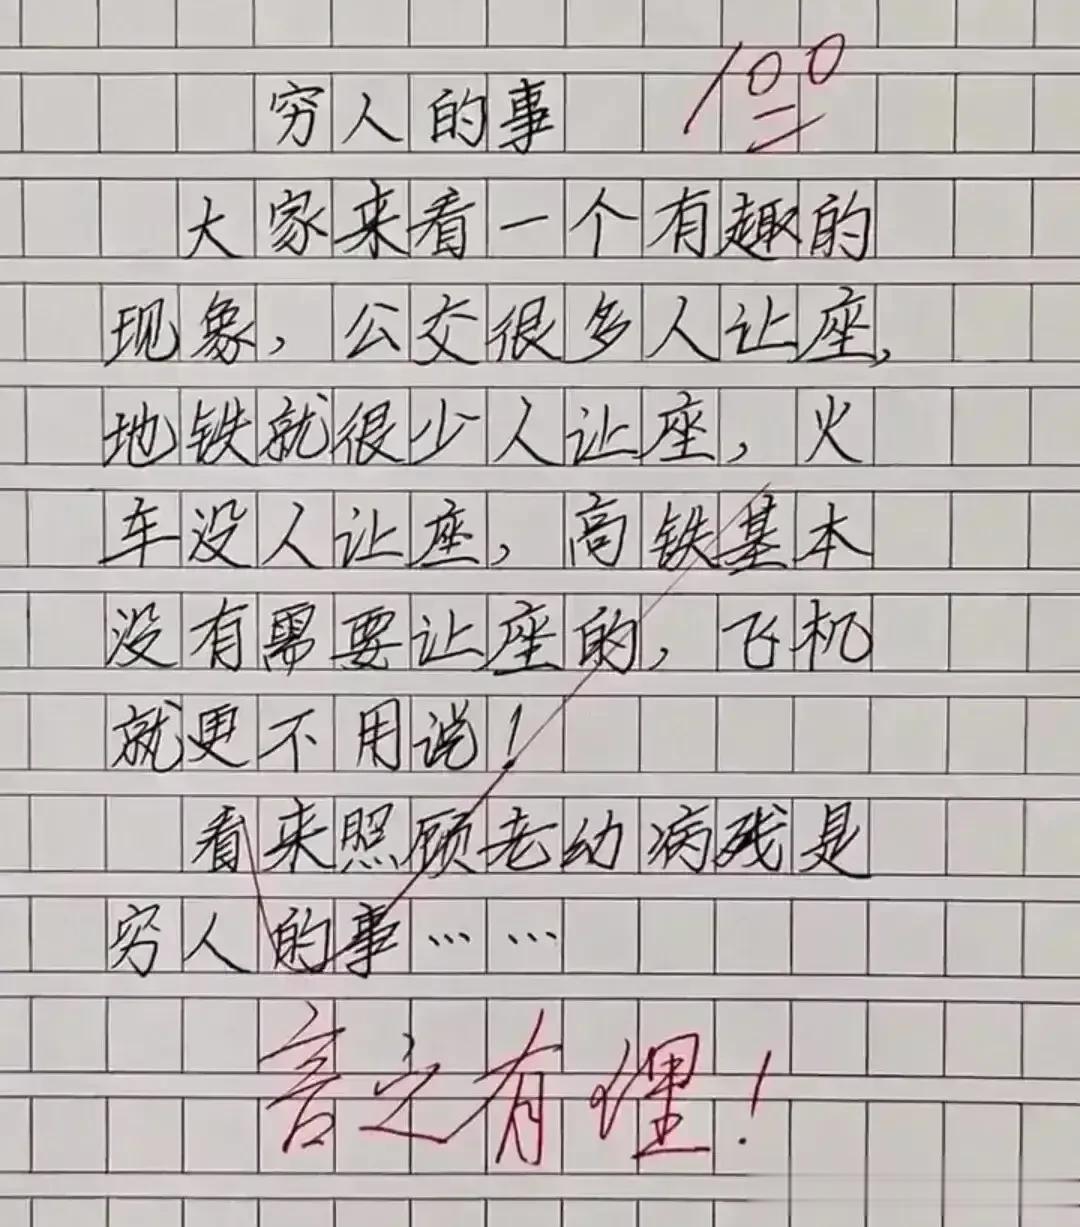 穷人的事 100
大家来看一个有趣的
现象，公交很多人让座，
地铁就很少人让座，火
车没人让座，高铁基本
没有需要让座的，飞机
就更不用说！
看来照顾老幼病残是
穷人的事……
言之有理！